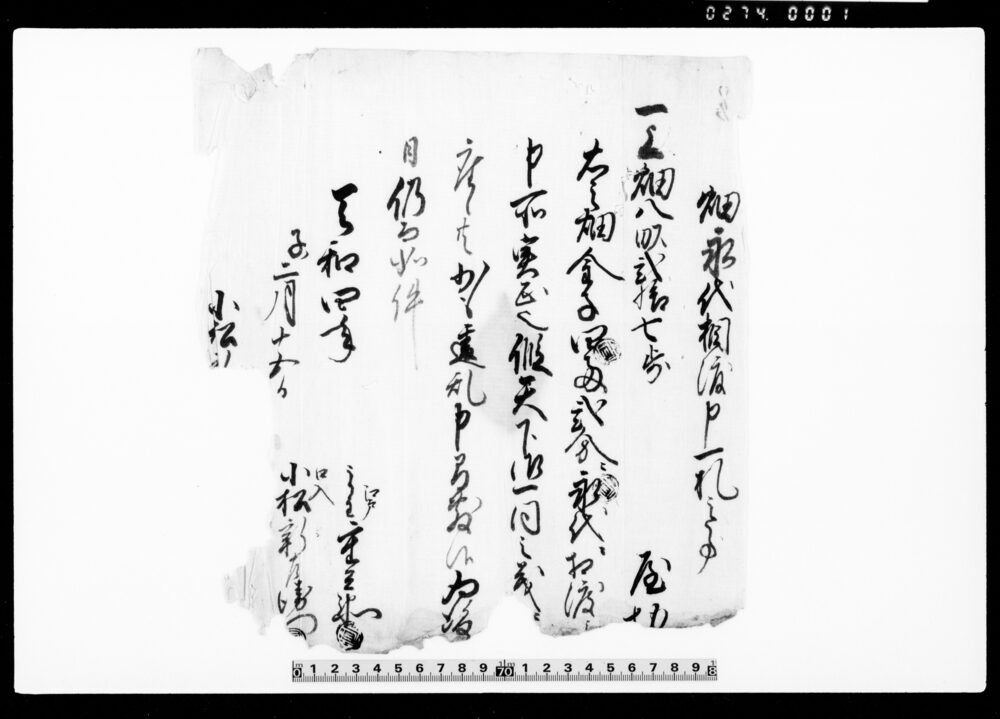 0274. 0001
畑永代相渡申一札之事
一上畑八畝弐拾七歩 屋
右之畑金子四両弐分永代相渡
申所実正也縦天下御一同之義
座候共少も違乱申間敷候為後
日仍而如件
天和四年
子二月十六日
江戸
主重兵衛
口入
小松新左衛門
小松
0 1 2 3 4 5 6 7 8 9 10 1 2 3 4 5 6 7 8 9